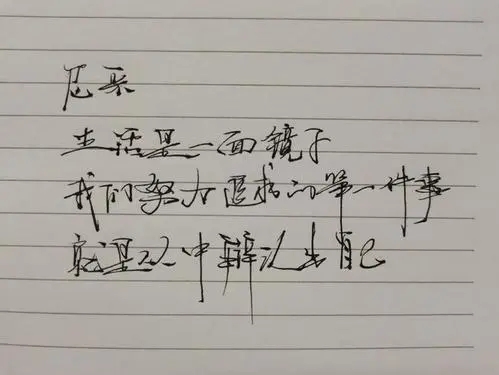 尼采
生活是一面镜子
我们努力追求的第一件事
就是从中辩认出自己